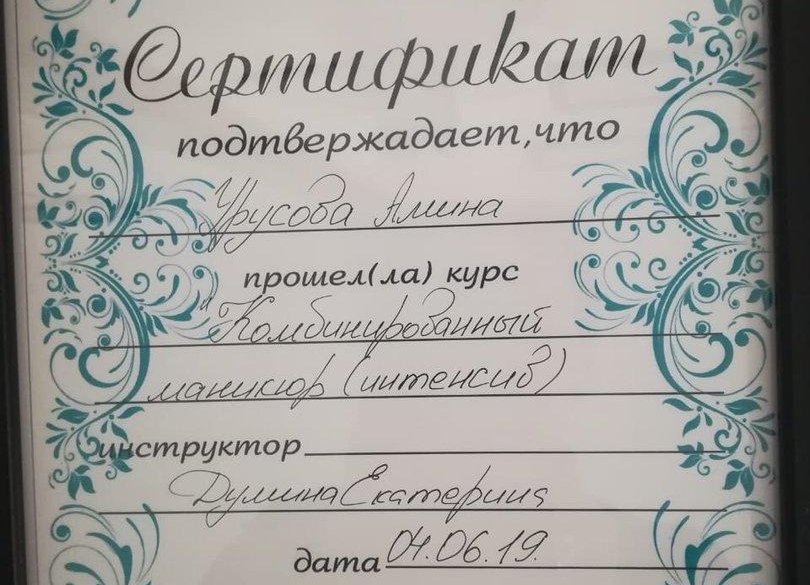 Сертификат
подтвержадает, что
Урусова Амина
прошел(ла) курс
"Комбинированный
маникюр (интенсив)
инструктор
Думина Екатерина
дата 04.06.19.